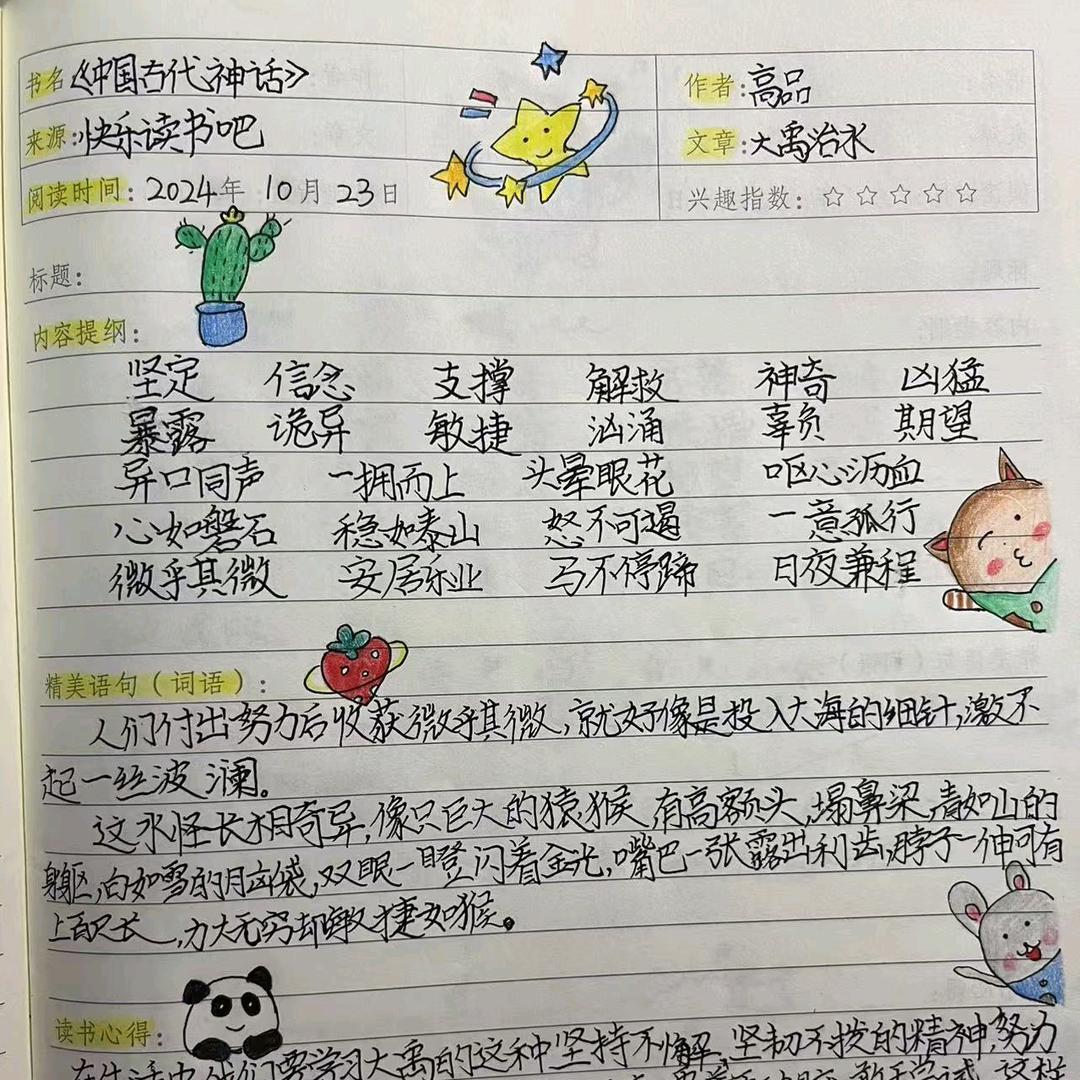 书名:《中国古代神话》 作者:高品
来源:快乐读书吧 文章:大禹治水
阅读时间:2024年10月23日 兴趣指数:☆☆☆☆☆
标题:
内容提纲:
坚定 信念 支撑 解救 神奇 凶猛
暴露 诡异 敏捷 汹涌 辜负 期望
异口同声 一拥而上 头晕眼花 呕心沥血
心如磐石 稳如泰山 怒不可遏 一意孤行
微乎其微 安居乐业 马不停蹄 日夜兼程
精美语句(词语):
人们付出努力后收获微乎其微,就好像是投入大海的细针,激不
起一丝波澜。
这水怪长相奇异,像只巨大的猿猴,有高额头,塌鼻梁,青如山的
身躯,白如雪的脑袋,双眼一瞪闪着金光,嘴巴一张露出利齿,脖子一伸可有
上百尺长,力大无穷却敏捷如猴。
读书心得:
在生活中我们要学习大禹的这种坚持不懈,坚韧不拔的精神,努力